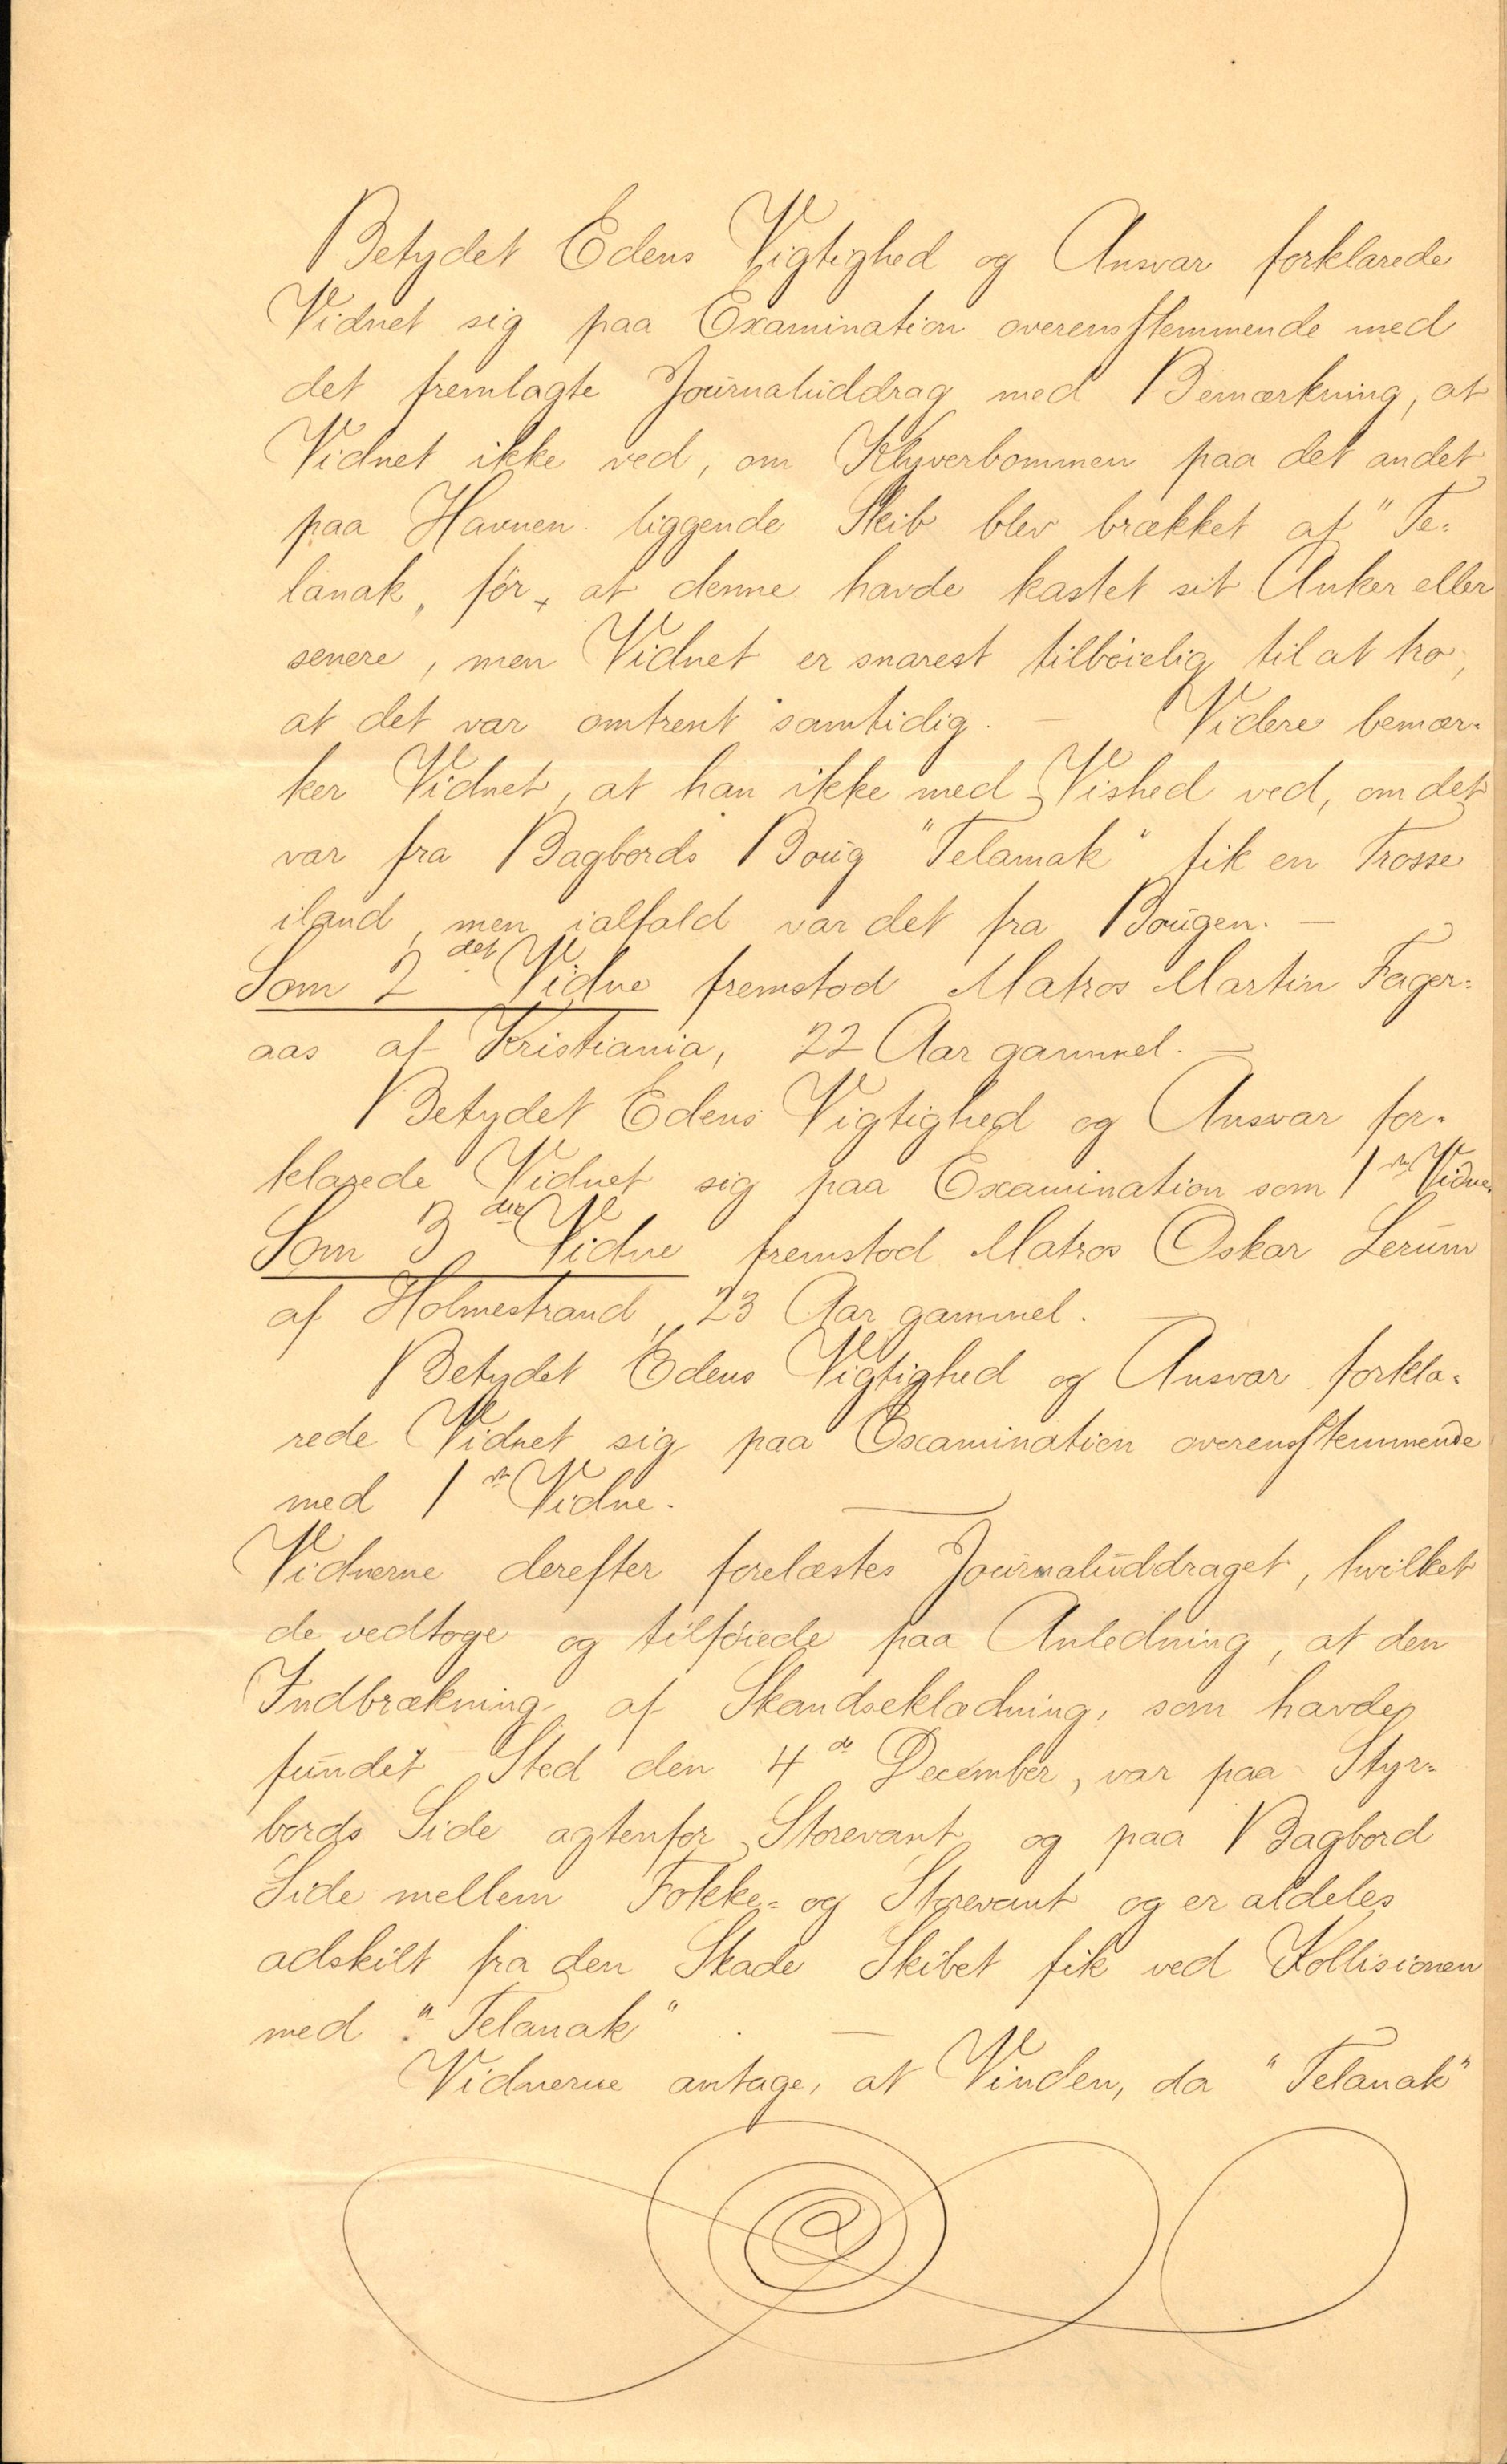 Betydet Edens Vigtighed og Ansvar forklarede
Vidnet sig paa Examination overensstemmende med
det fremlagte Journaluddrag med Bemærkning, at
Vidnet ikke ved, om Klyverbommen paa det andet
paa Havnen liggende Skib blev brækket af "Te-
lanak, før, at denne havde kastet sit Anker eller
senere, men Vidnet er snarest tilbøielig til at tro,
at det var omtrent samtidig. — Videre bemær-
ker Vidnet, at han ikke med Vished ved, om det
var fra Bagbords Boug "Telamak" fik en Trosse
iland, men ialfald var det fra Bougen. —
Som 2det Vidne fremstod Matros Martin Fager-
aas af Kristiania, 22 Aar gammel. —
Betydet Edens Vigtighed og Ansvar for-
klarede Vidnet sig paa Examination som 1ste Vidne.
Som 3die Vidne fremstod Matros Oskar Lerum
af Holmestrand, 23 Aar gammel. —
Betydet Edens Vigtighed og Ansvar forkla-
rede Vidnet sig paa Examination overensstemmende
med 1ste Vidne. —
Vidnerne derefter forelæstes Journaluddraget, hvilket
de vedtoge og tilføiede paa Anledning, at den
Indbrækning af Skandseklædning, som havde
fundet Sted den 4de December, var paa Styr-
bords Side agtenfor Storevant og paa Bagbord
Side mellem Fokke- og Storevant og er aldeles
adskilt fra den Skade Skibet fik ved Kollisionen
med "Telanak". —
Vidnerne antage, at Vinden, da "Telanak"